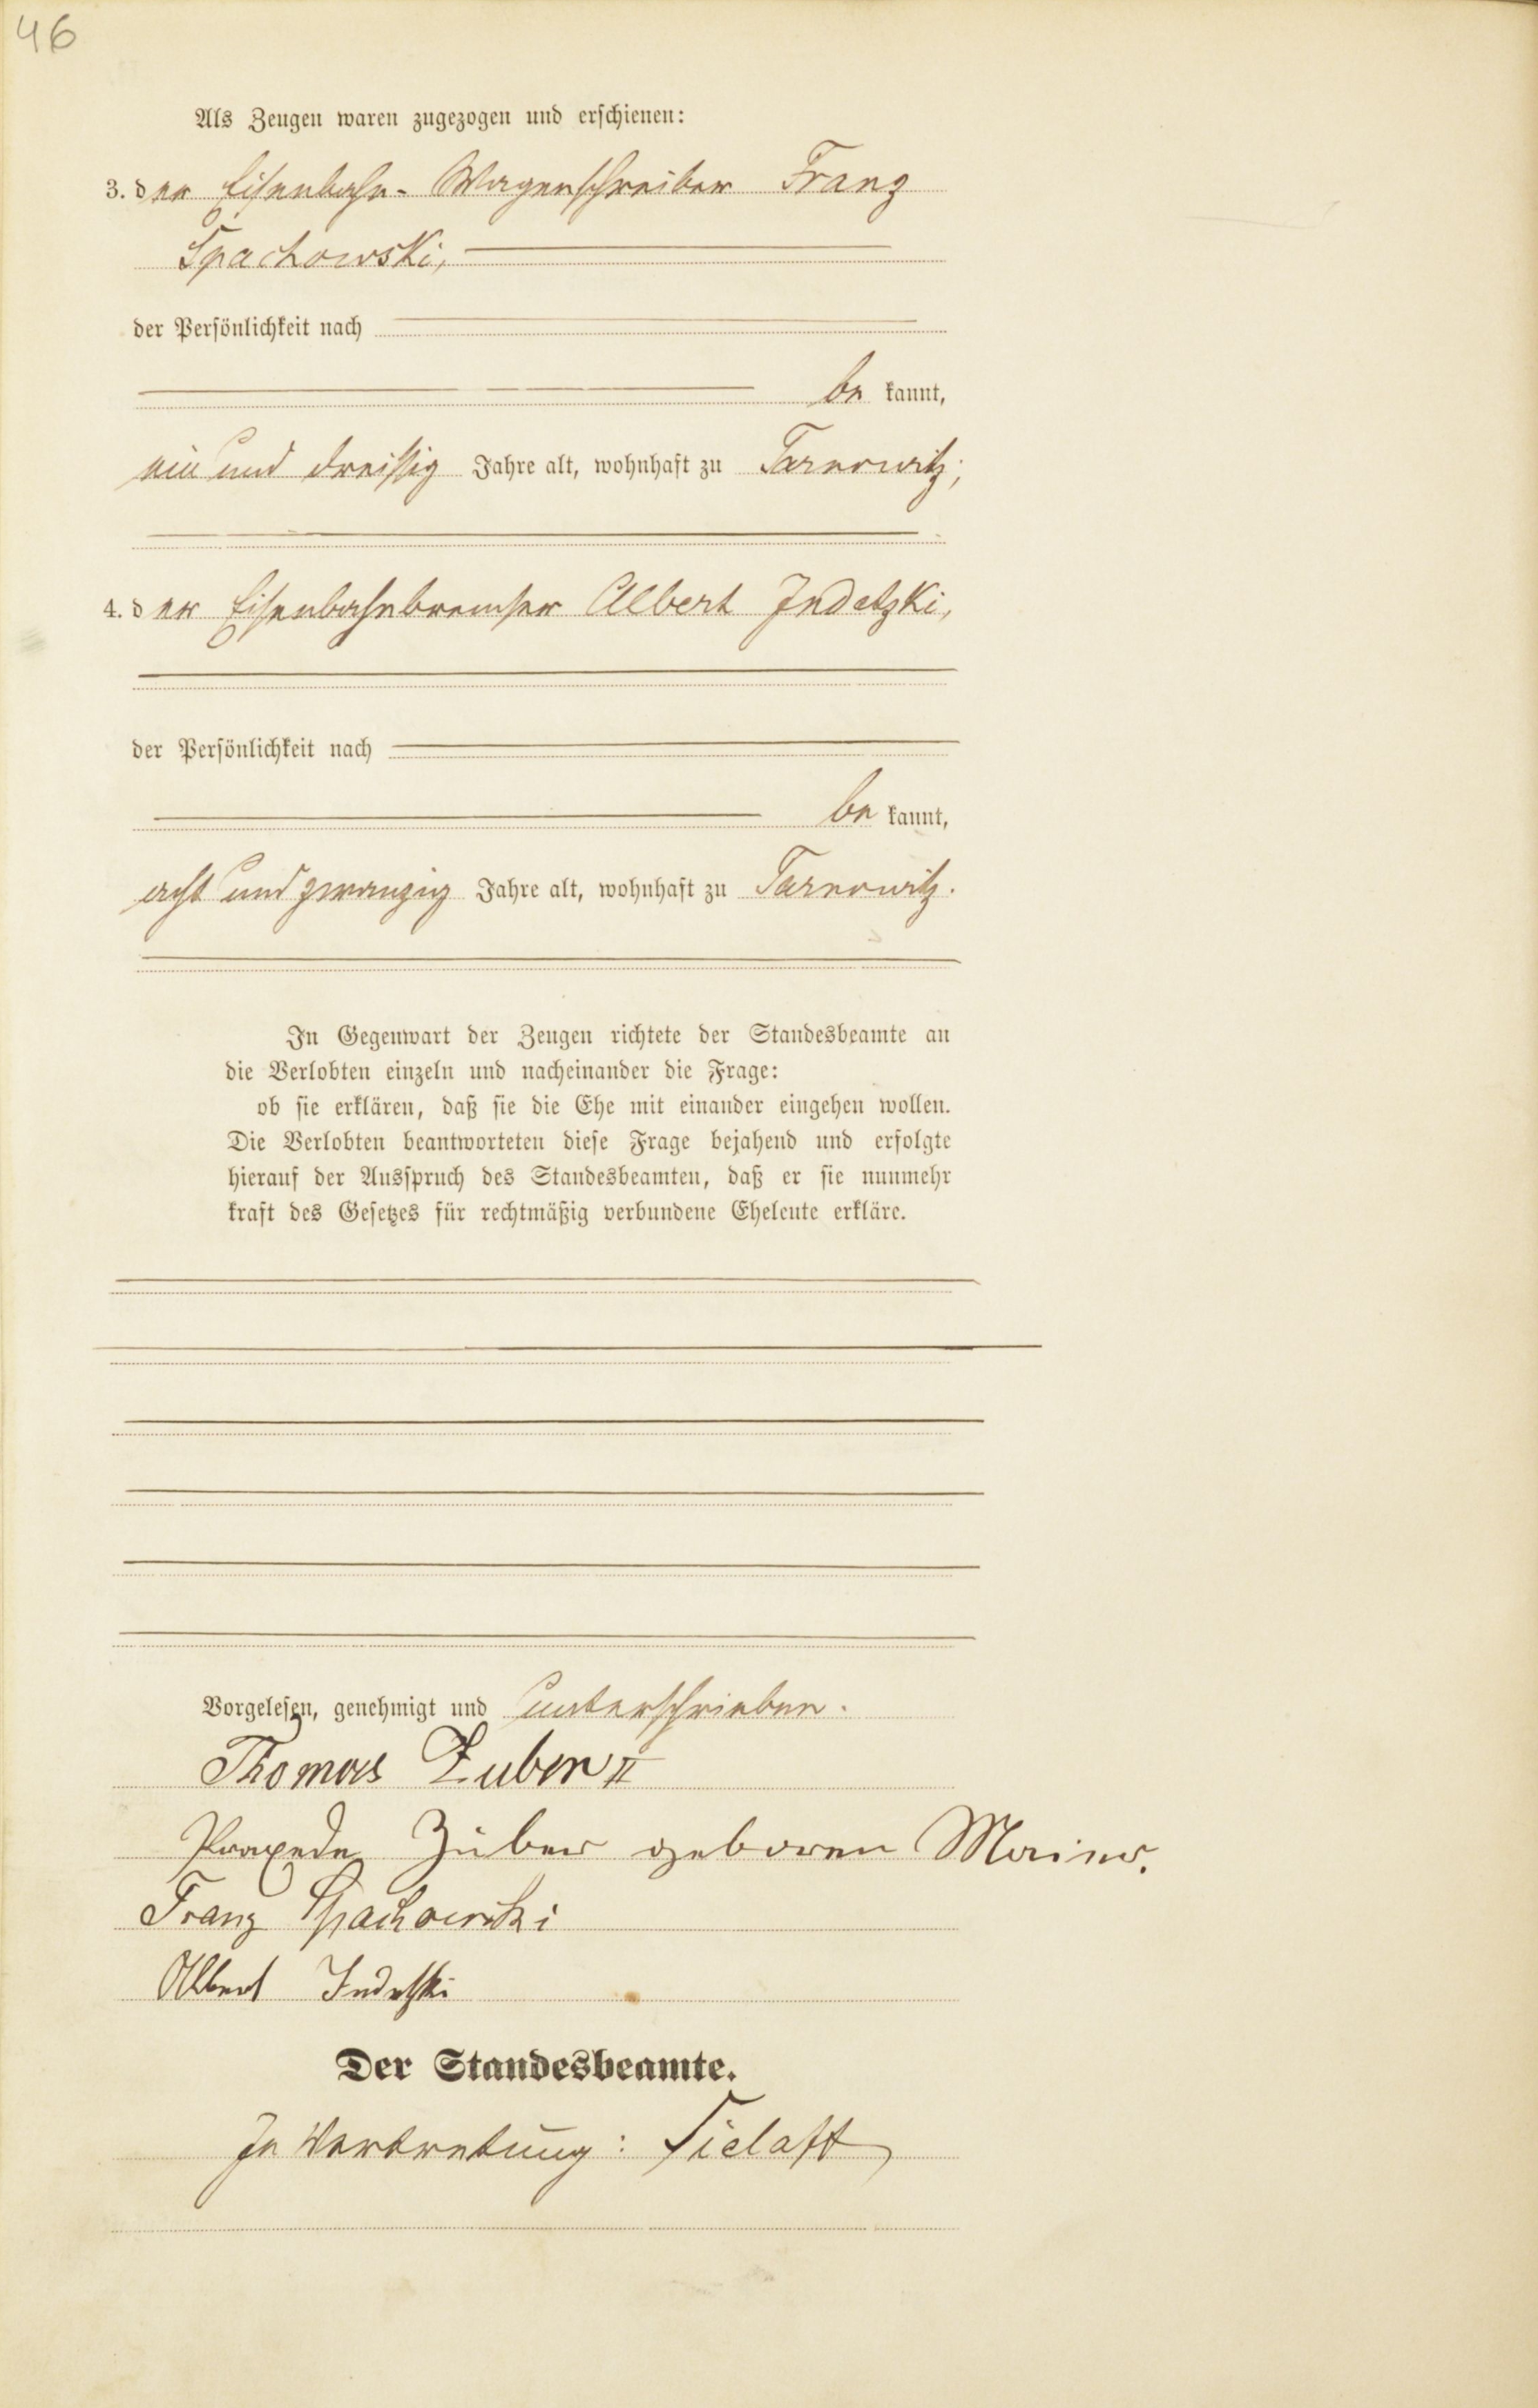 46
Als Zeugen waren zugezogen und erschienen:
3. der Eisenbahn- Wagenschreiber Franz
Spachowski,
der Persönlichkeit nach
be kannt,
ein und dreißig Jahre alt, wohnhaft zu Tarnowitz;
4. der Eisenbahnbremser Albert Indetzki,
der Persönlichkeit nach
be kannt,
acht und zwanzig Jahre alt, wohnhaft zu Tarnowitz.
In Gegenwart der Zeugen richtete der Standesbeamte an
die Verlobten einzeln und nacheinander die Frage:
ob sie erklären, daß sie die Ehe mit einander eingehen wollen.
Die Verlobten beantworteten diese Frage bejahend und erfolgte
hierauf der Ausspruch des Standesbeamten, daß er sie nunmehr
kraft des Gesetzes für rechtmäßig verbundene Eheleute erkläre.
Vorgelesen, genehmigt und unterschrieben.
Thomas Zuber II
Praxede Zuber geboren
Franz Spachowski
Albert Indetzki
Der Standesbeamte.
In Vertretung: